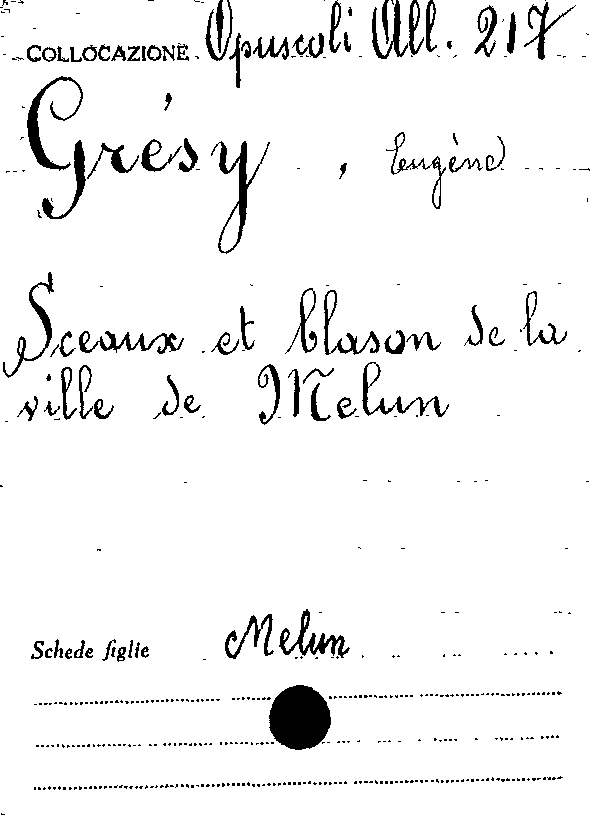 COLLOCAZIONE Opuscoli All. 217
Grésy, Eugène
Sceaux et blason de la
ville de Melun
Schede figlie Melun